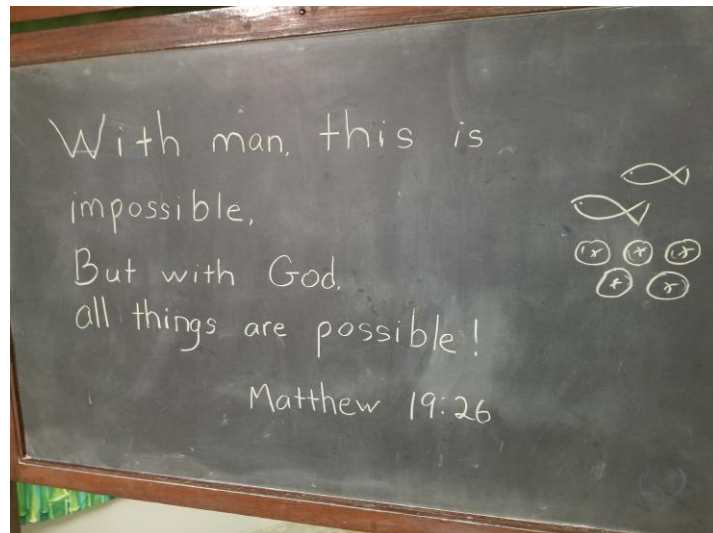 With man, this is
impossible,
But with God,
all things are possible!
Matthew 19:26